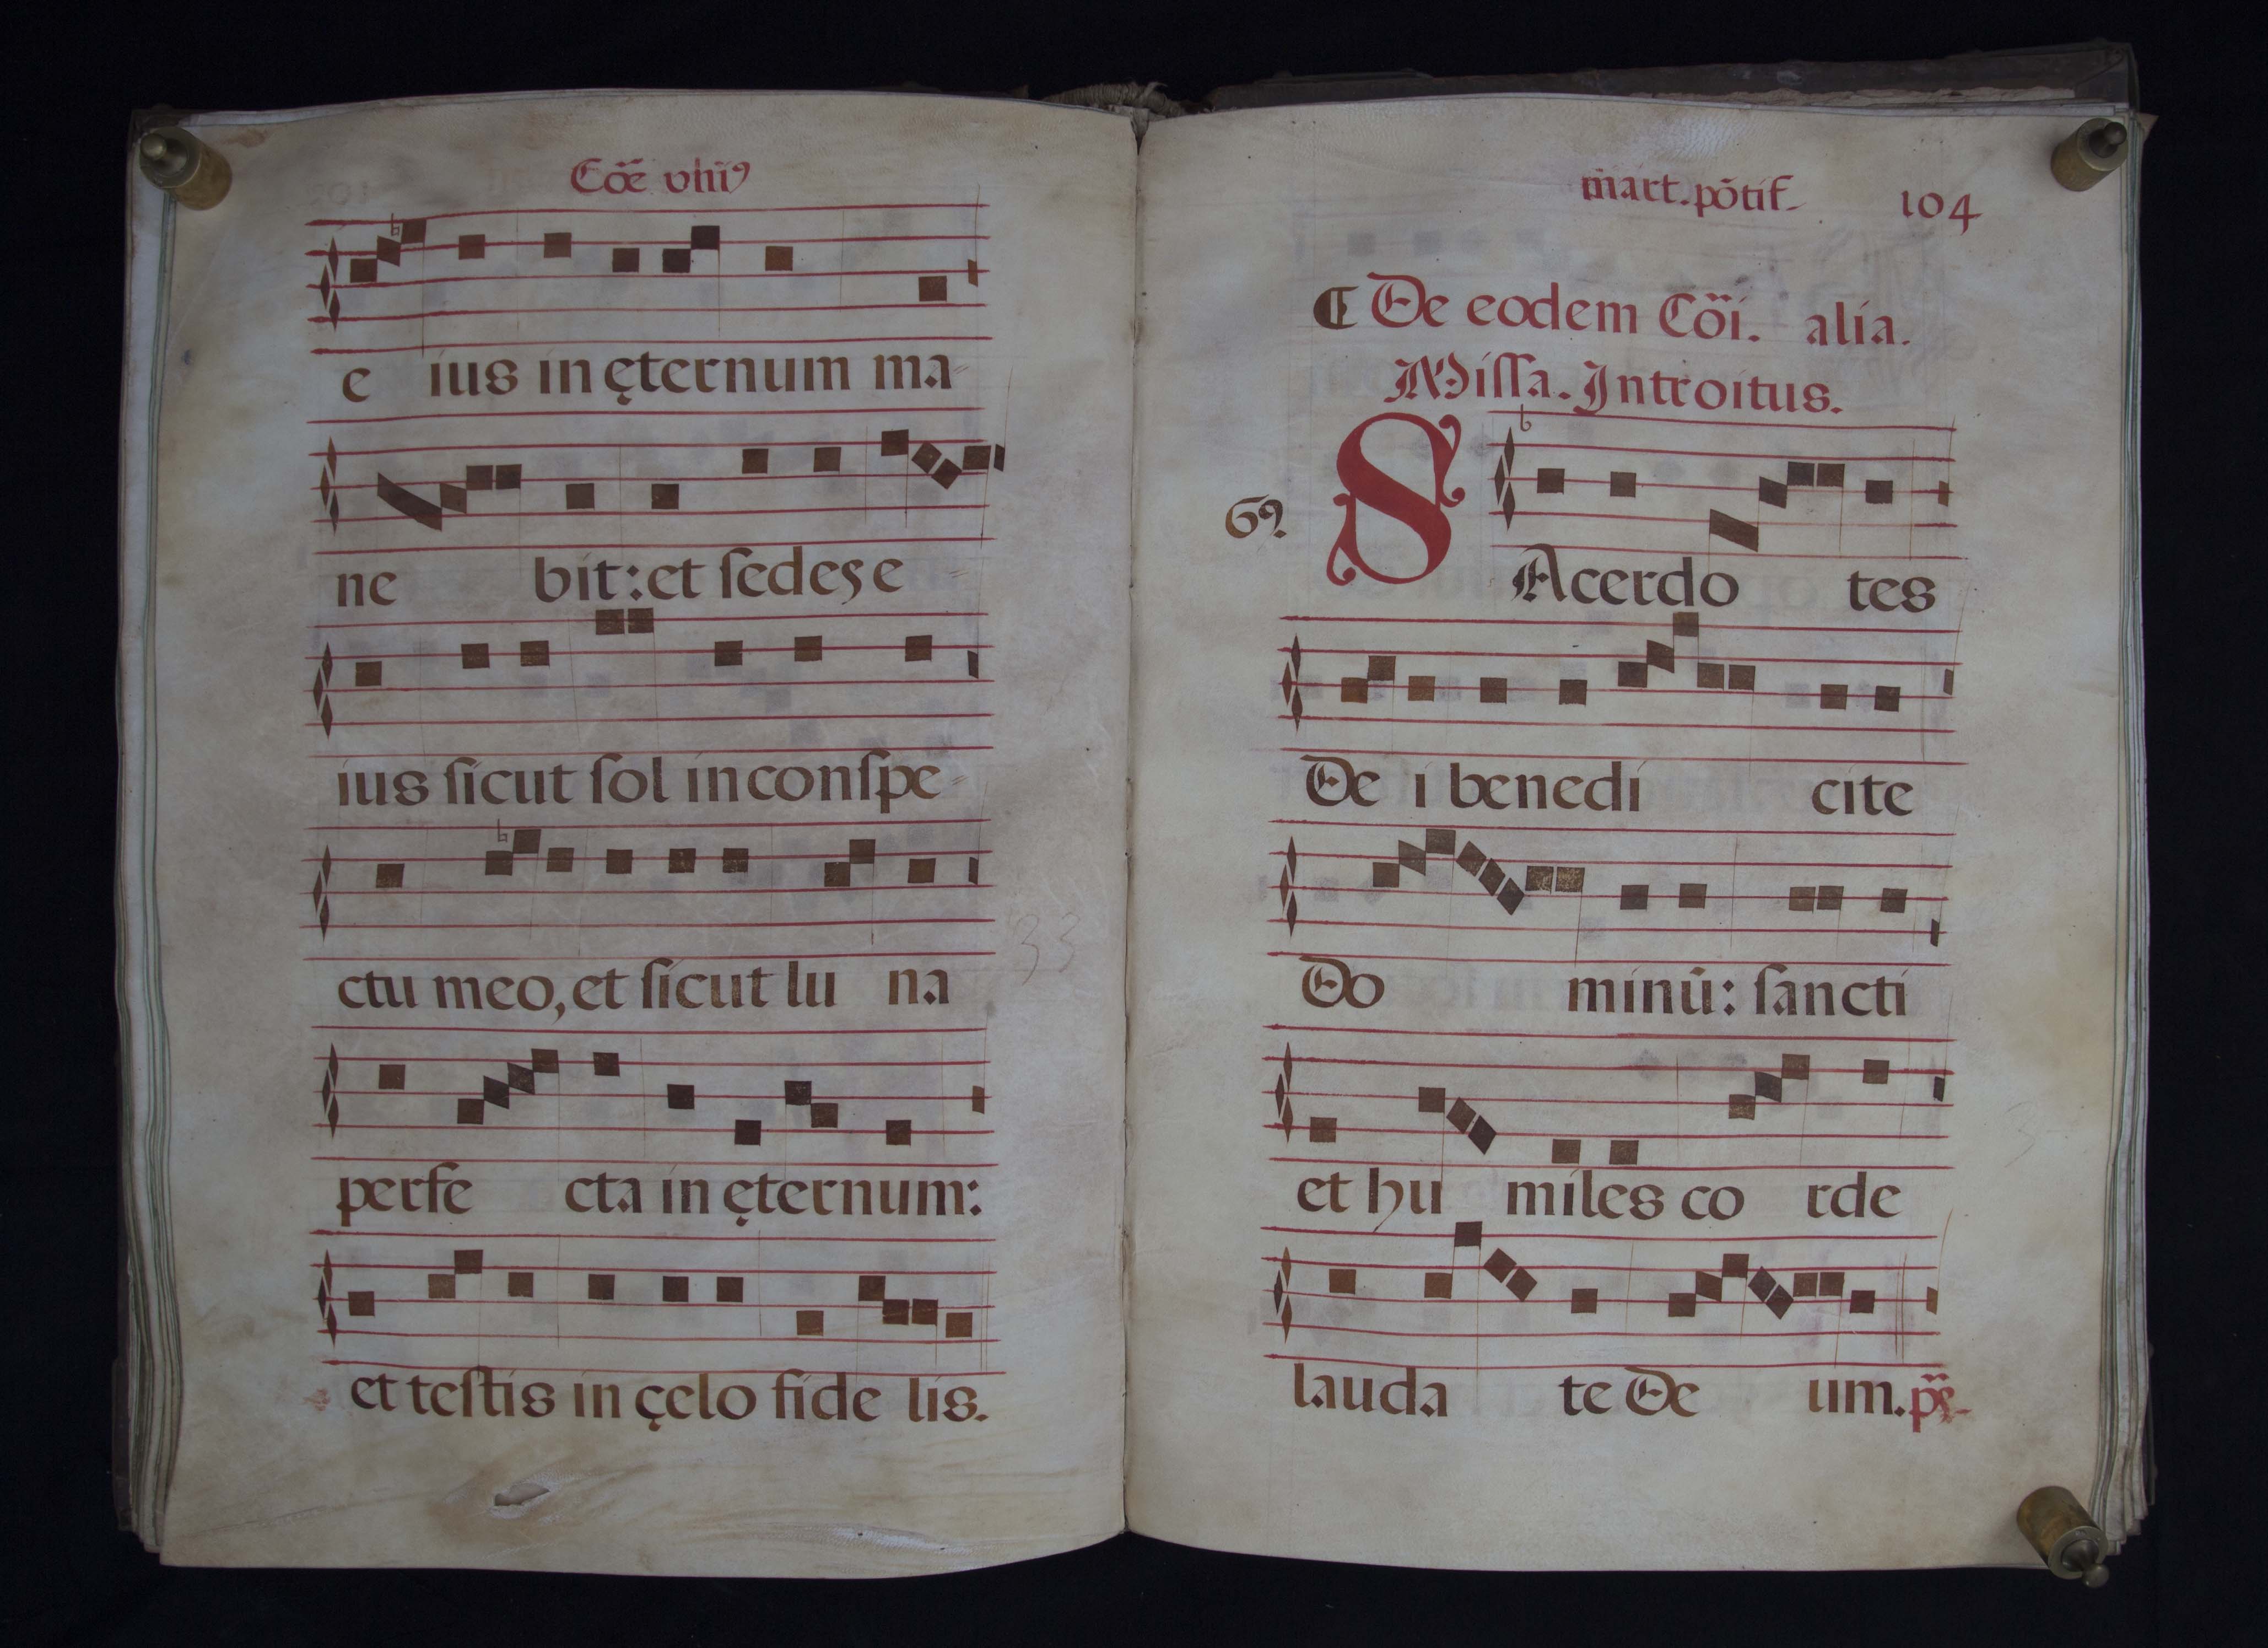 Cõe vni⁹
e ius in ęternum ma
ne bit: et ſedes e
ius ſicut ſol in conſpe
ctu meo, et ſicut lu na
perfe cta in ęternum:
et teſtis in çelo fide lis.
mart. põtif.
104
De eodem Cõi. alia.
Miſſa. Introitus.
6⁹.
SAcerdo tes
De i benedi cite
Do minū: ſancti
et hu miles co rde
lauda te De um. p̃s.
33